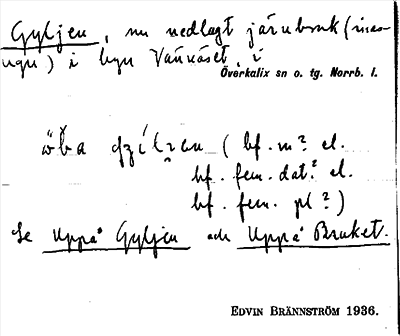 Gyljen, nu nedlagt järnbruk (mas-
ugn) i byn Vännäset, i
Överkalix sn o. tg. Norrb. l.
(bf. m? el.
bf. fem. dat? el.
bf. fem. pl?)
Se Uppå Gyljen och Uppå Bruket.
EDVIN BRÄNNSTRÖM 1936.